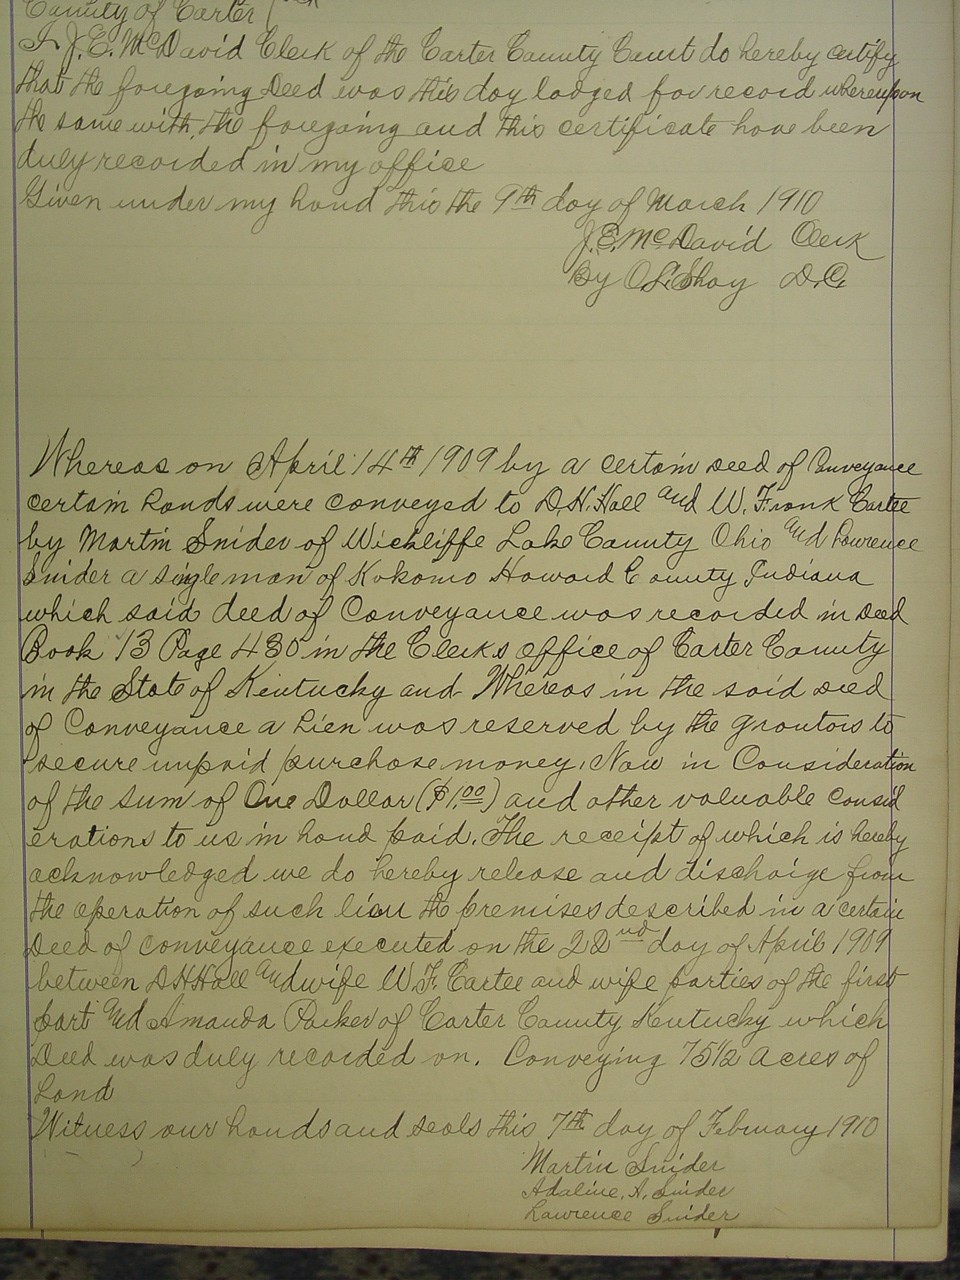 County of Carter
I J. E. McDavid Clerk of the Carter County Court do hereby certify
that the foregoing Deed was this day lodged for record whereupon
the same with, the foregoing and this certificate have been
duly recorded in my office
Given under my hand this the 9th day of March 1910
J. E. McDavid Clerk
By O. L. Shay D.C.
Whereas on April 14th 1909 by a certain deed of Conveyance
certain Lands were conveyed to D.H. Hall and W. Frank Cartee
by Martin Snider of Wickliffe Lake County Ohio and Lawrence
Snider a single man of Kokomo Howard County Indiana
which said deed of Conveyance was recorded in Deed
Book 13 Page 430 in the Clerks office of Carter County
in the State of Kentucky and Whereas in the said deed
of Conveyance a Lien was reserved by the grantors to
secure unpaid purchase money. Now in Consideration
of the sum of One Dollar ($1.00) and other valuable consid
erations to us in hand paid. The receipt of which is hereby
acknowledged we do hereby release and discharge from
the operation of such lien the premises described in a certain
Deed of conveyance executed on the 22nd day of April 1909
between D H Hall and wife W. F. Cartee and wife parties of the first
part and Amanda Parker of Carter County Kentucky which
Deed was duly recorded on. Conveying 75 1/2 acres of
Land
Witness our hands and seals this 7th day of February 1910
Martin Snider
Adaline, A. Snider
Lawrence Snider